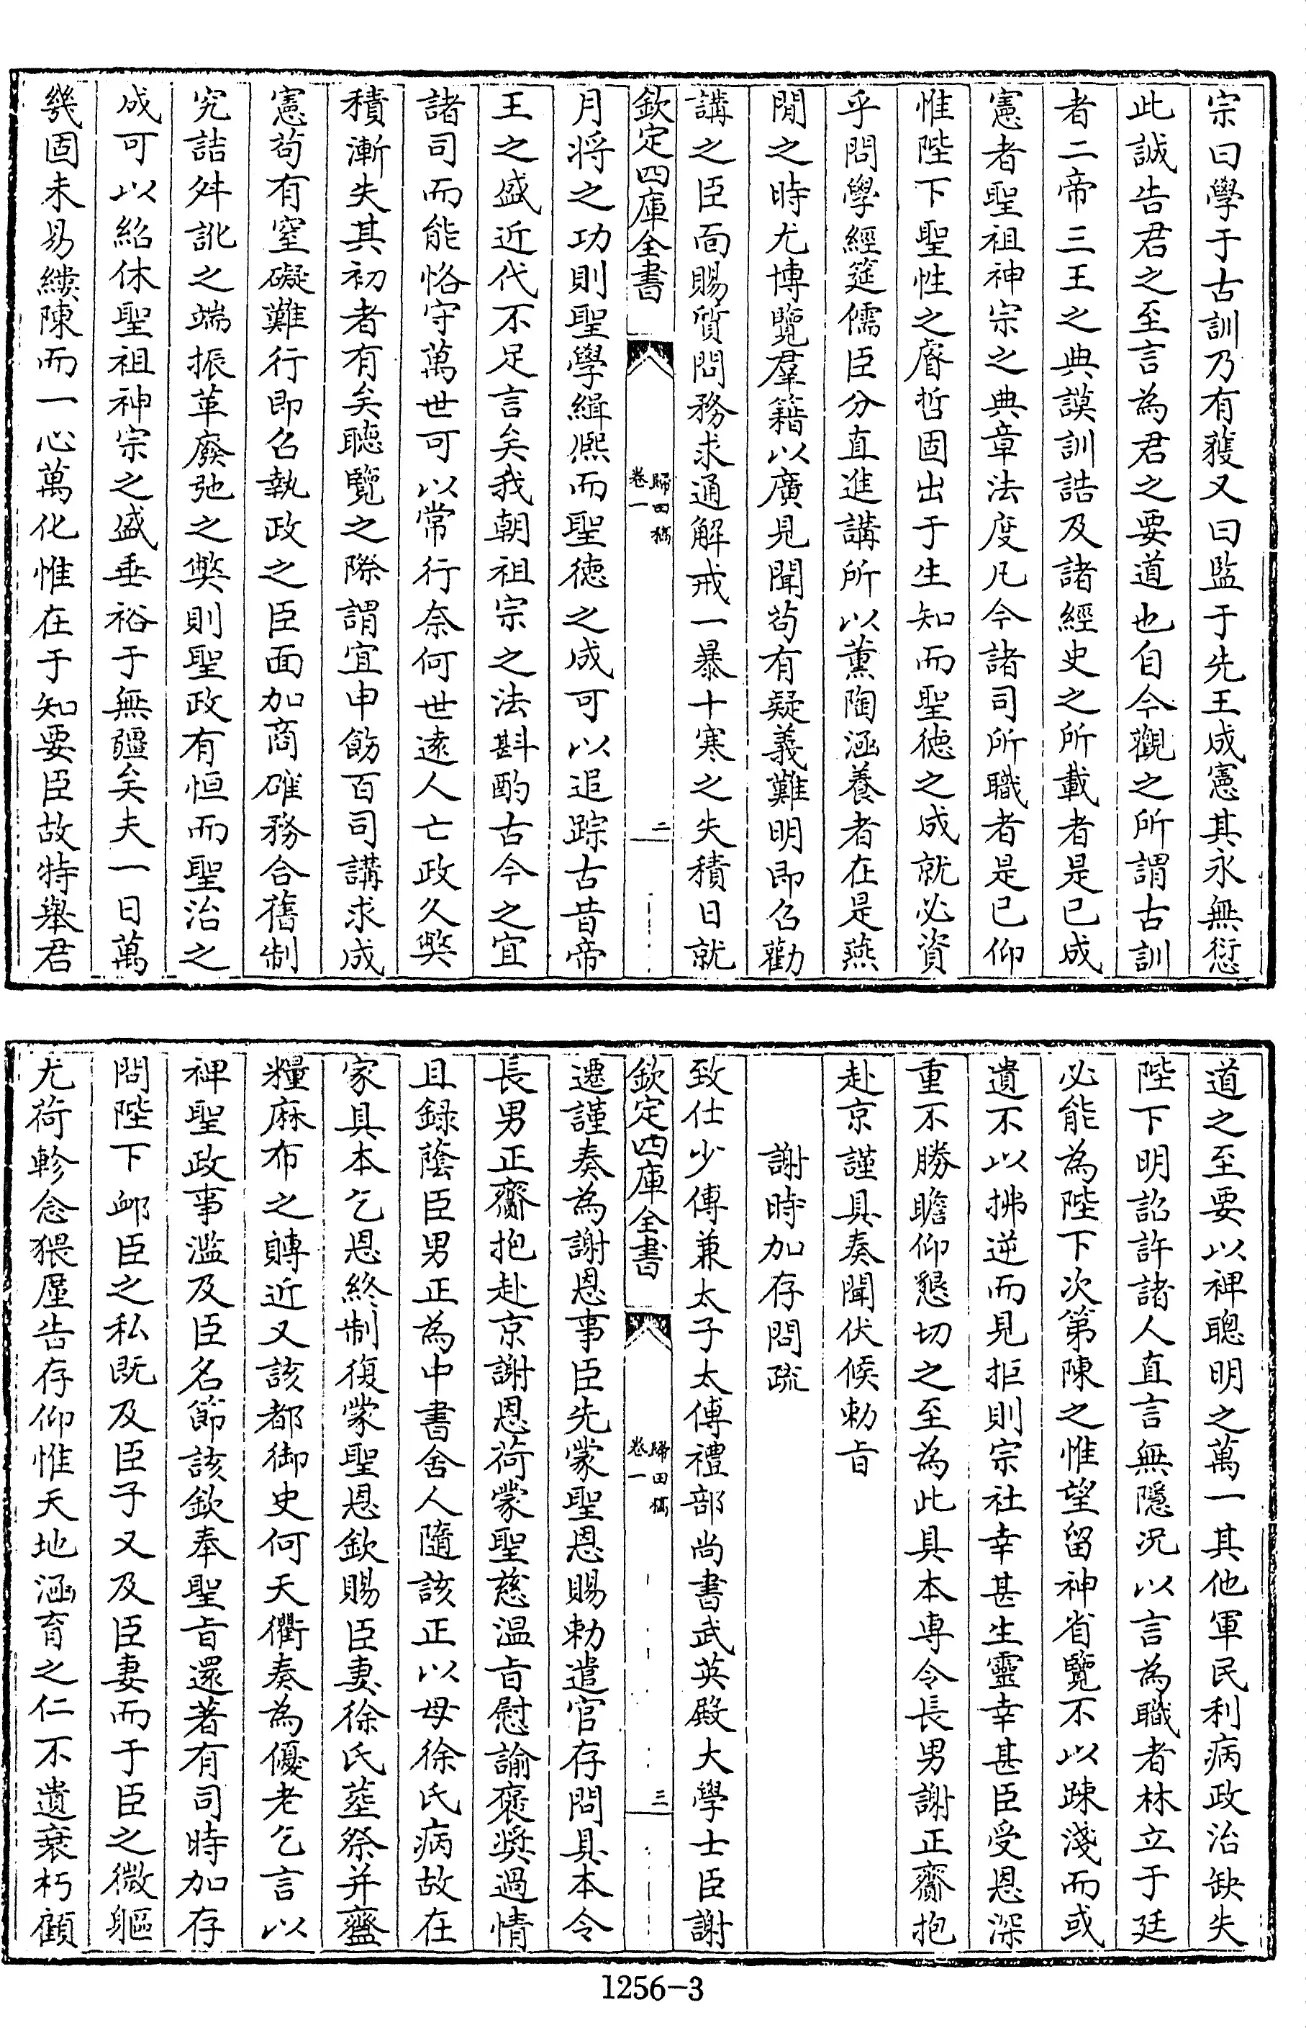 宗曰學于古訓乃有獲又曰監于先王成憲其永無愆
此誠告君之至言為君之要道也自今觀之所謂古訓
者二帝三王之典謨訓誥及諸經史之所載者是已成
憲者聖祖神宗之典章法度凡今諸司所職者是已仰
惟陛下聖性之睿哲固出于生知而聖德之成就必資
乎問學經筵儒臣分直進講所以薰陶涵養者在是燕
閒之時尤博覽羣籍以廣見聞茍有疑義難明即召勸
講之臣面賜質問務求通解戒一暴十寒之失積日就
欽定四庫全書 歸田稿 卷一 二
月將之功則聖學緝熙而聖德之成可以追踪古昔帝
王之盛近代不足言矣我朝祖宗之法斟酌古今之宜
諸司而能恪守萬世可以常行奈何世逺人亡政久獘
積漸失其初者有矣聽覽之際謂宜申飭百司講求成
憲茍有窒礙難行即召執政之臣面加商確務合舊制
究詰舛訛之端振革廢弛之獘則聖政有恒而聖治之
成可以紹休聖祖神宗之盛垂裕于無疆矣夫一日萬
幾固未易縷陳而一心萬化惟在于知要臣故特舉君
道之至要以裨聰明之萬一其他軍民利病政治缺失
陛下明詔許諸人直言無隱况以言為職者林立于廷
必能為陛下次第陳之惟望留神省覽不以踈淺而或
遺不以拂逆而見拒則宗社幸甚生靈幸甚臣受恩深
重不勝瞻仰懇切之至為此具本専令長男謝正齎抱
赴京謹具奏聞伏候勅旨
謝時加存問疏
致仕少傅兼太子太傅禮部尚書武英殿大學士臣謝
欽定四庫全書 歸田稿 卷一 三
遷謹奏為謝恩事臣先蒙聖恩賜勅遣官存問具本令
長男正齎抱赴京謝恩荷蒙聖慈温旨慰諭褒奬過情
且録蔭臣男正為中書舍人隨該正以母徐氏病故在
家具本乞恩終制復蒙聖恩欽賜臣妻徐氏塟祭并齋
糧麻布之賻近又該都御史何天衢奏為優老乞言以
裨聖政事濫及臣名節該欽奉聖旨還著有司時加存
問陛下卹臣之私既及臣子又及臣妻而于臣之微軀
尤荷軫念猥厪告存仰惟天地涵育之仁不遺衰朽顧
1256-3